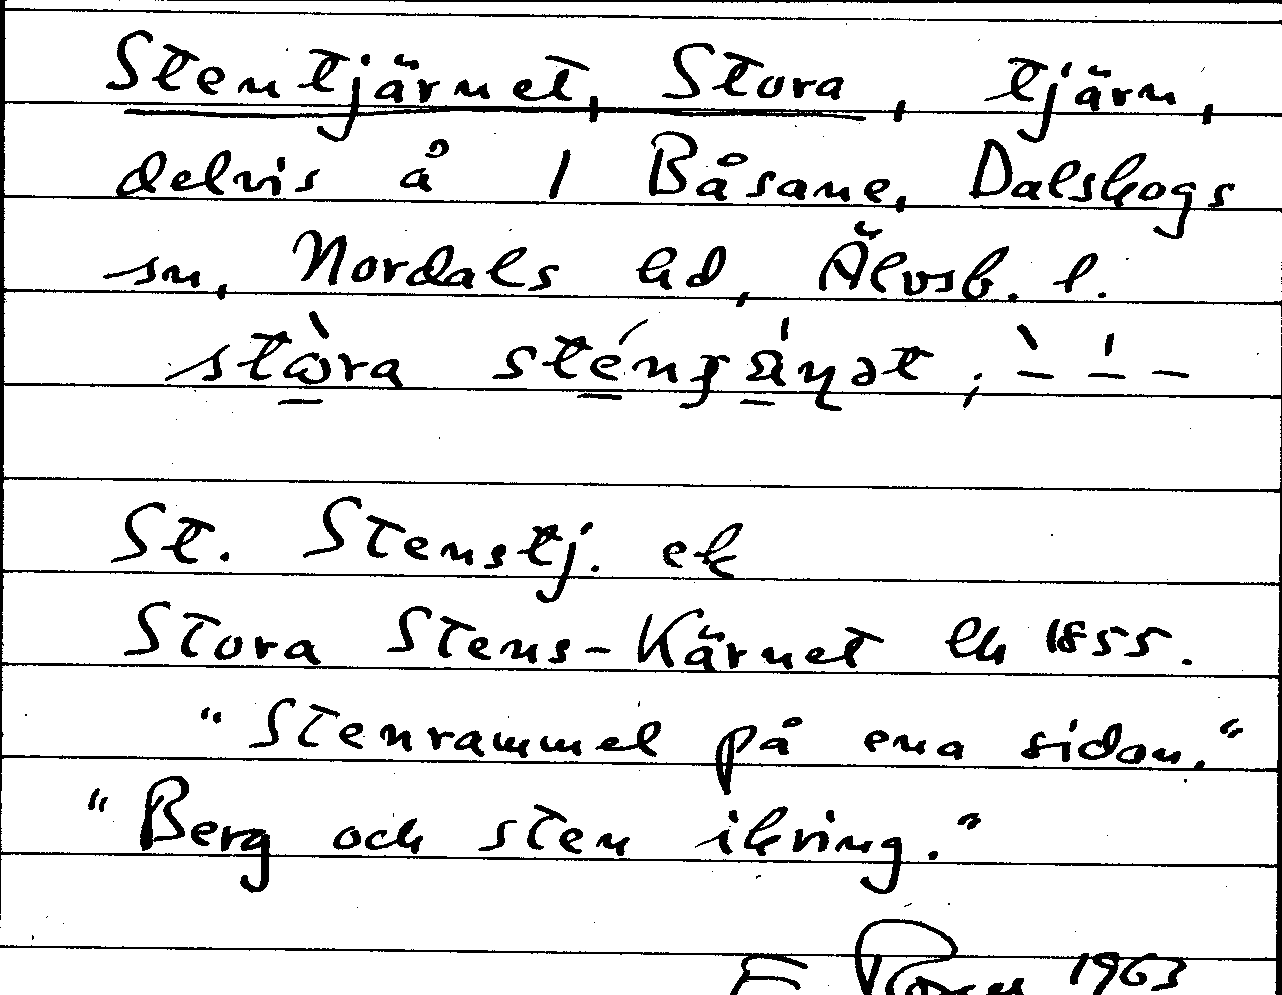 Stentjärnet, Stora, tjärn,
delvis å 1 Båsane, Dalskogs
sn, Nordals hd, Älvsb. l.
St. Stenstj. ek
Stora Stens-Kärnet lk 1855.
"Stenrammel på ena sidan."
"Berg och sten ikring."
1963